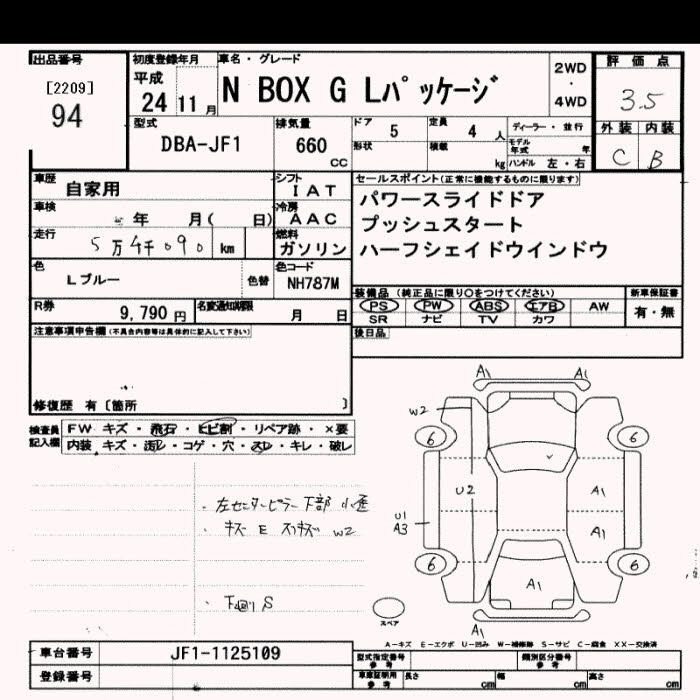 出品番号 初度登録年月 車名・グレード 評価点
[2209] 平成 2WD
94 24 11月 N BOX G Lパッケージ ・ 3.5
4WD
型式 排気量 ドア 5 定員 4人 ディーラー・並行 外装 内装
DBA-JF1 660 cc 形状 積載 kg モデル年式 年 C B
ハンドル 左・右
車歴 自家用 シフト IAT セールスポイント(正常に機能するものに限ります)
車検 年 月( 日) 冷房 AAC パワースライドドア
走行 5万4千090 km 燃料 ガソリン プッシュスタート
ハーフシェイドウインドウ
色 Lブルー 色替 色コード NH787M
装備品 (純正品に限り○をつけてください) 新車保証書
R券 9,790円 名変通知期限 月 日 PS PW ABS エアB AW 有・無
SR ナビ TV カワ
注意事項申告欄(不具合内容等は具体的に記入して下さい) 後日品
修復歴 有〔箇所 〕
検査員記入欄 FW キズ・飛石・ヒビ割・リペア跡・×要
内装 キズ・汚レ・コゲ・穴・スレ・キレ・破レ
A1 A1
W2
6 6
・左センターピラー下部 小歪
U2 A1
・キズ E スリキズ W2
U1
A3 A1
6 6
A1
・下廻り S
スペア
A1
A-キズ E-エクボ U-凹み W-補修跡 S-サビ C-腐食 XX-交換済
車台番号 JF1-1125109 型式指定番号 参考 類別区分番号 参考
登録番号 車庫証明用 参考 長さ cm 幅 cm 高さ cm